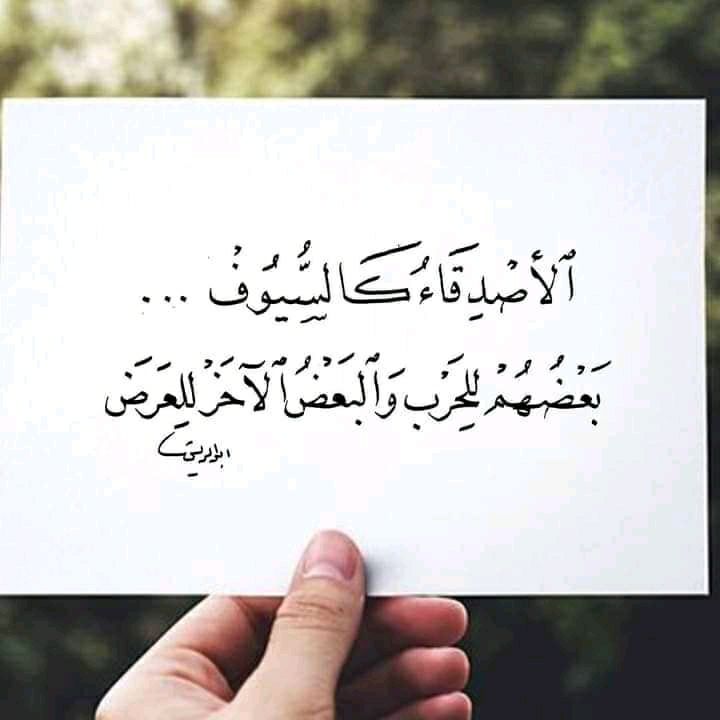 ٱلأَصْدِقَاءُ كَالسُّيُوفْ ...
بَعْضُهُمْ لِلحَرْب وَٱلبَعَضُ ٱلآخَرْ لِلعَرَض